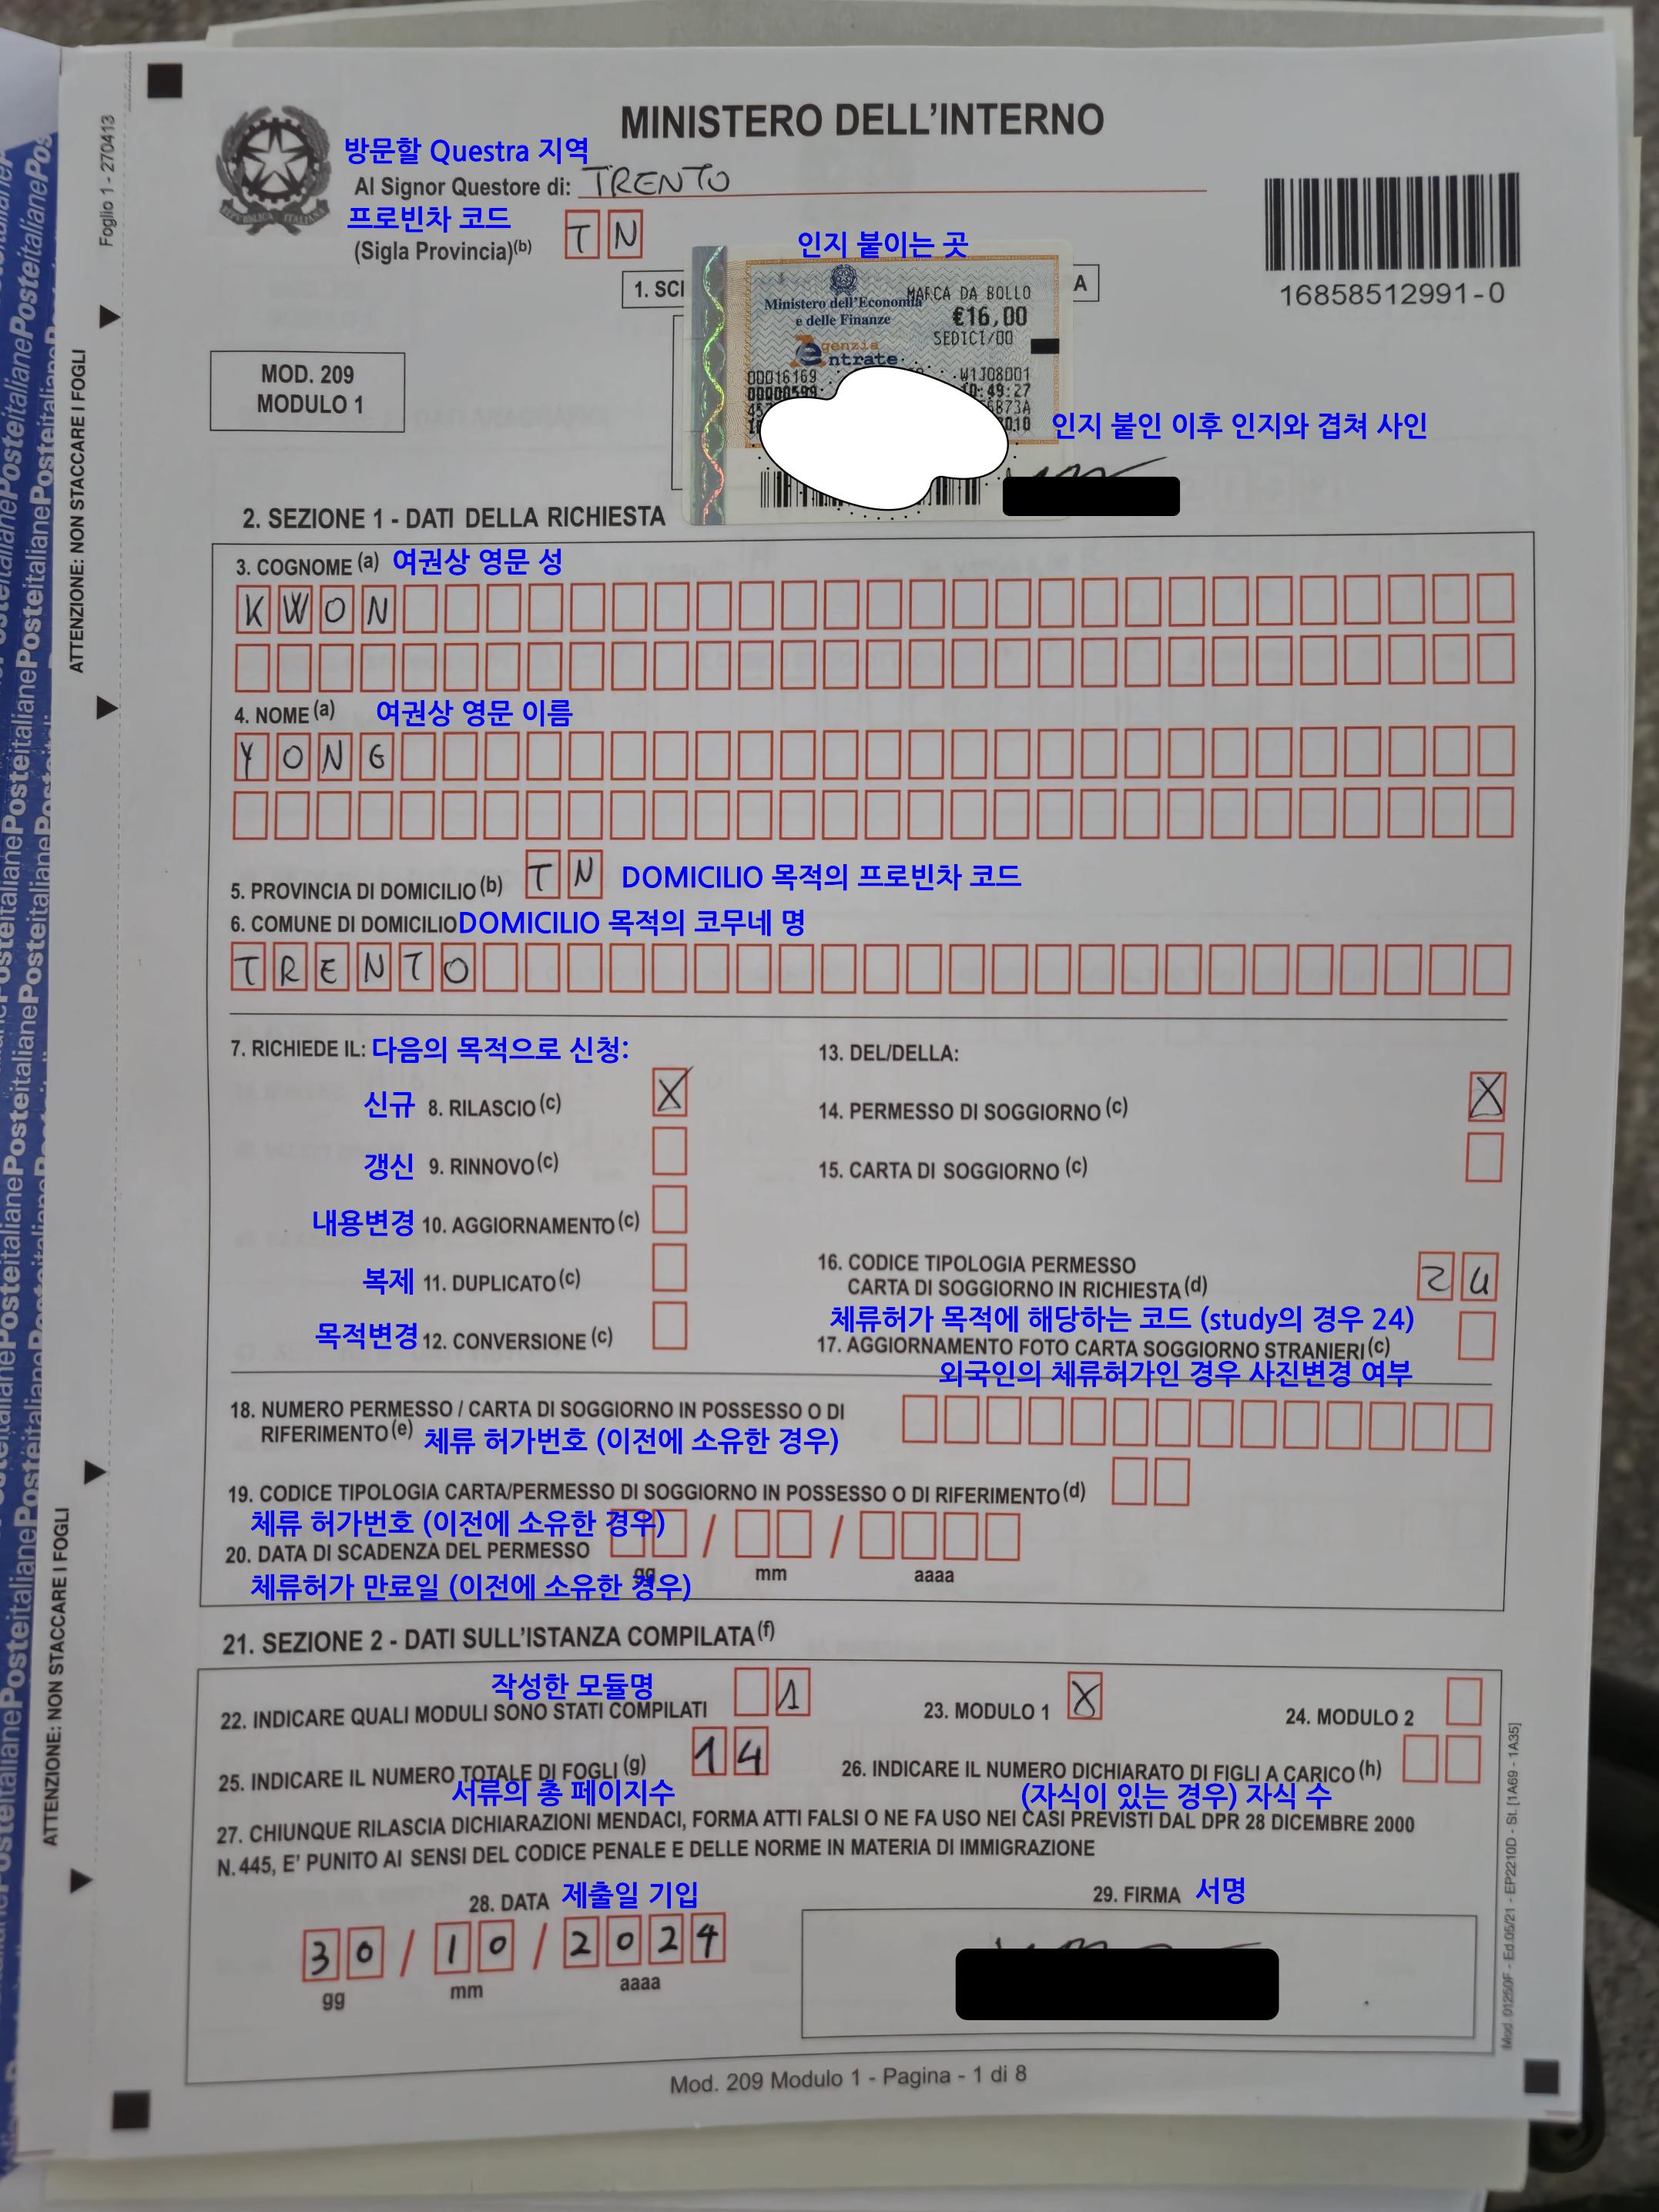 Foglio 1 - 270413
MINISTERO DELL'INTERNO
방문할 Questra 지역
Al Signor Questore di: TRENTO
프로빈차 코드
(Sigla Provincia)(b) TN
REPVBBLICA ITALIANA
16858512991-0
인지 붙이는 곳
1. SC
A
Ministero dell'Economia
e delle Finanze
MARCA DA BOLLO
€16,00
SEDICI/00
agenzia
entrate
00016169
W1J08001
00000599
10:49:27
인지 붙인 이후 인지와 겹쳐 사인
MOD. 209
MODULO 1
2. SEZIONE 1 - DATI DELLA RICHIESTA
3. COGNOME (a) 여권상 영문 성
KWON
4. NOME (a) 여권상 영문 이름
YONG
5. PROVINCIA DI DOMICILIO (b) TN DOMICILIO 목적의 프로빈차 코드
6. COMUNE DI DOMICILIO DOMICILIO 목적의 코무네 명
TRENTO
7. RICHIEDE IL: 다음의 목적으로 신청:
신규 8. RILASCIO (c) X
갱신 9. RINNOVO (c)
내용변경 10. AGGIORNAMENTO (c)
복제 11. DUPLICATO (c)
목적변경 12. CONVERSIONE (c)
13. DEL/DELLA:
14. PERMESSO DI SOGGIORNO (c) X
15. CARTA DI SOGGIORNO (c)
16. CODICE TIPOLOGIA PERMESSO
CARTA DI SOGGIORNO IN RICHIESTA (d) 24
체류허가 목적에 해당하는 코드 (study의 경우 24)
17. AGGIORNAMENTO FOTO CARTA SOGGIORNO STRANIERI (c)
외국인의 체류허가인 경우 사진변경 여부
18. NUMERO PERMESSO / CARTA DI SOGGIORNO IN POSSESSO O DI
RIFERIMENTO (e) 체류 허가번호 (이전에 소유한 경우)
19. CODICE TIPOLOGIA CARTA/PERMESSO DI SOGGIORNO IN POSSESSO O DI RIFERIMENTO (d)
체류 허가번호 (이전에 소유한 경우)
20. DATA DI SCADENZA DEL PERMESSO / /
gg mm aaaa
체류허가 만료일 (이전에 소유한 경우)
21. SEZIONE 2 - DATI SULL'ISTANZA COMPILATA (f)
작성한 모듈명
22. INDICARE QUALI MODULI SONO STATI COMPILATI 1
23. MODULO 1 X
24. MODULO 2
25. INDICARE IL NUMERO TOTALE DI FOGLI (g) 14
서류의 총 페이지수
26. INDICARE IL NUMERO DICHIARATO DI FIGLI A CARICO (h)
(자식이 있는 경우) 자식 수
27. CHIUNQUE RILASCIA DICHIARAZIONI MENDACI, FORMA ATTI FALSI O NE FA USO NEI CASI PREVISTI DAL DPR 28 DICEMBRE 2000
N.445, E' PUNITO AI SENSI DEL CODICE PENALE E DELLE NORME IN MATERIA DI IMMIGRAZIONE
28. DATA 제출일 기입
30/10/2024
gg mm aaaa
29. FIRMA 서명
Mod. 209 Modulo 1 - Pagina - 1 di 8
Mod. 01250F - Ed.05/21 - EP2210D - St. [1A69 - 1A35]
ATTENZIONE: NON STACCARE I FOGLI
ATTENZIONE: NON STACCARE I FOGLI
PosteitalianePosteitalianePosteitalianePosteitaliane